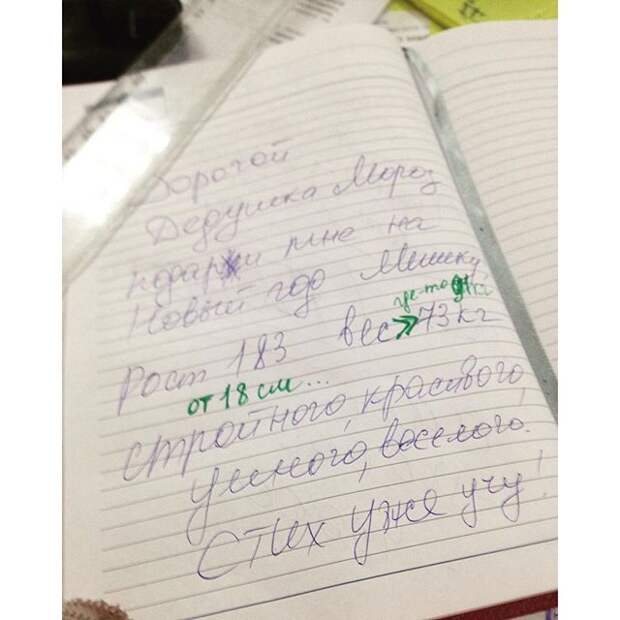 Дорогой
Дедушка Мороз
подари мне на
Новый год Мишку
где-то
Рост 183 вес > 73 кг
от 18 см...
стройного, красивого,
умного, веселого.
Стих уже учу!